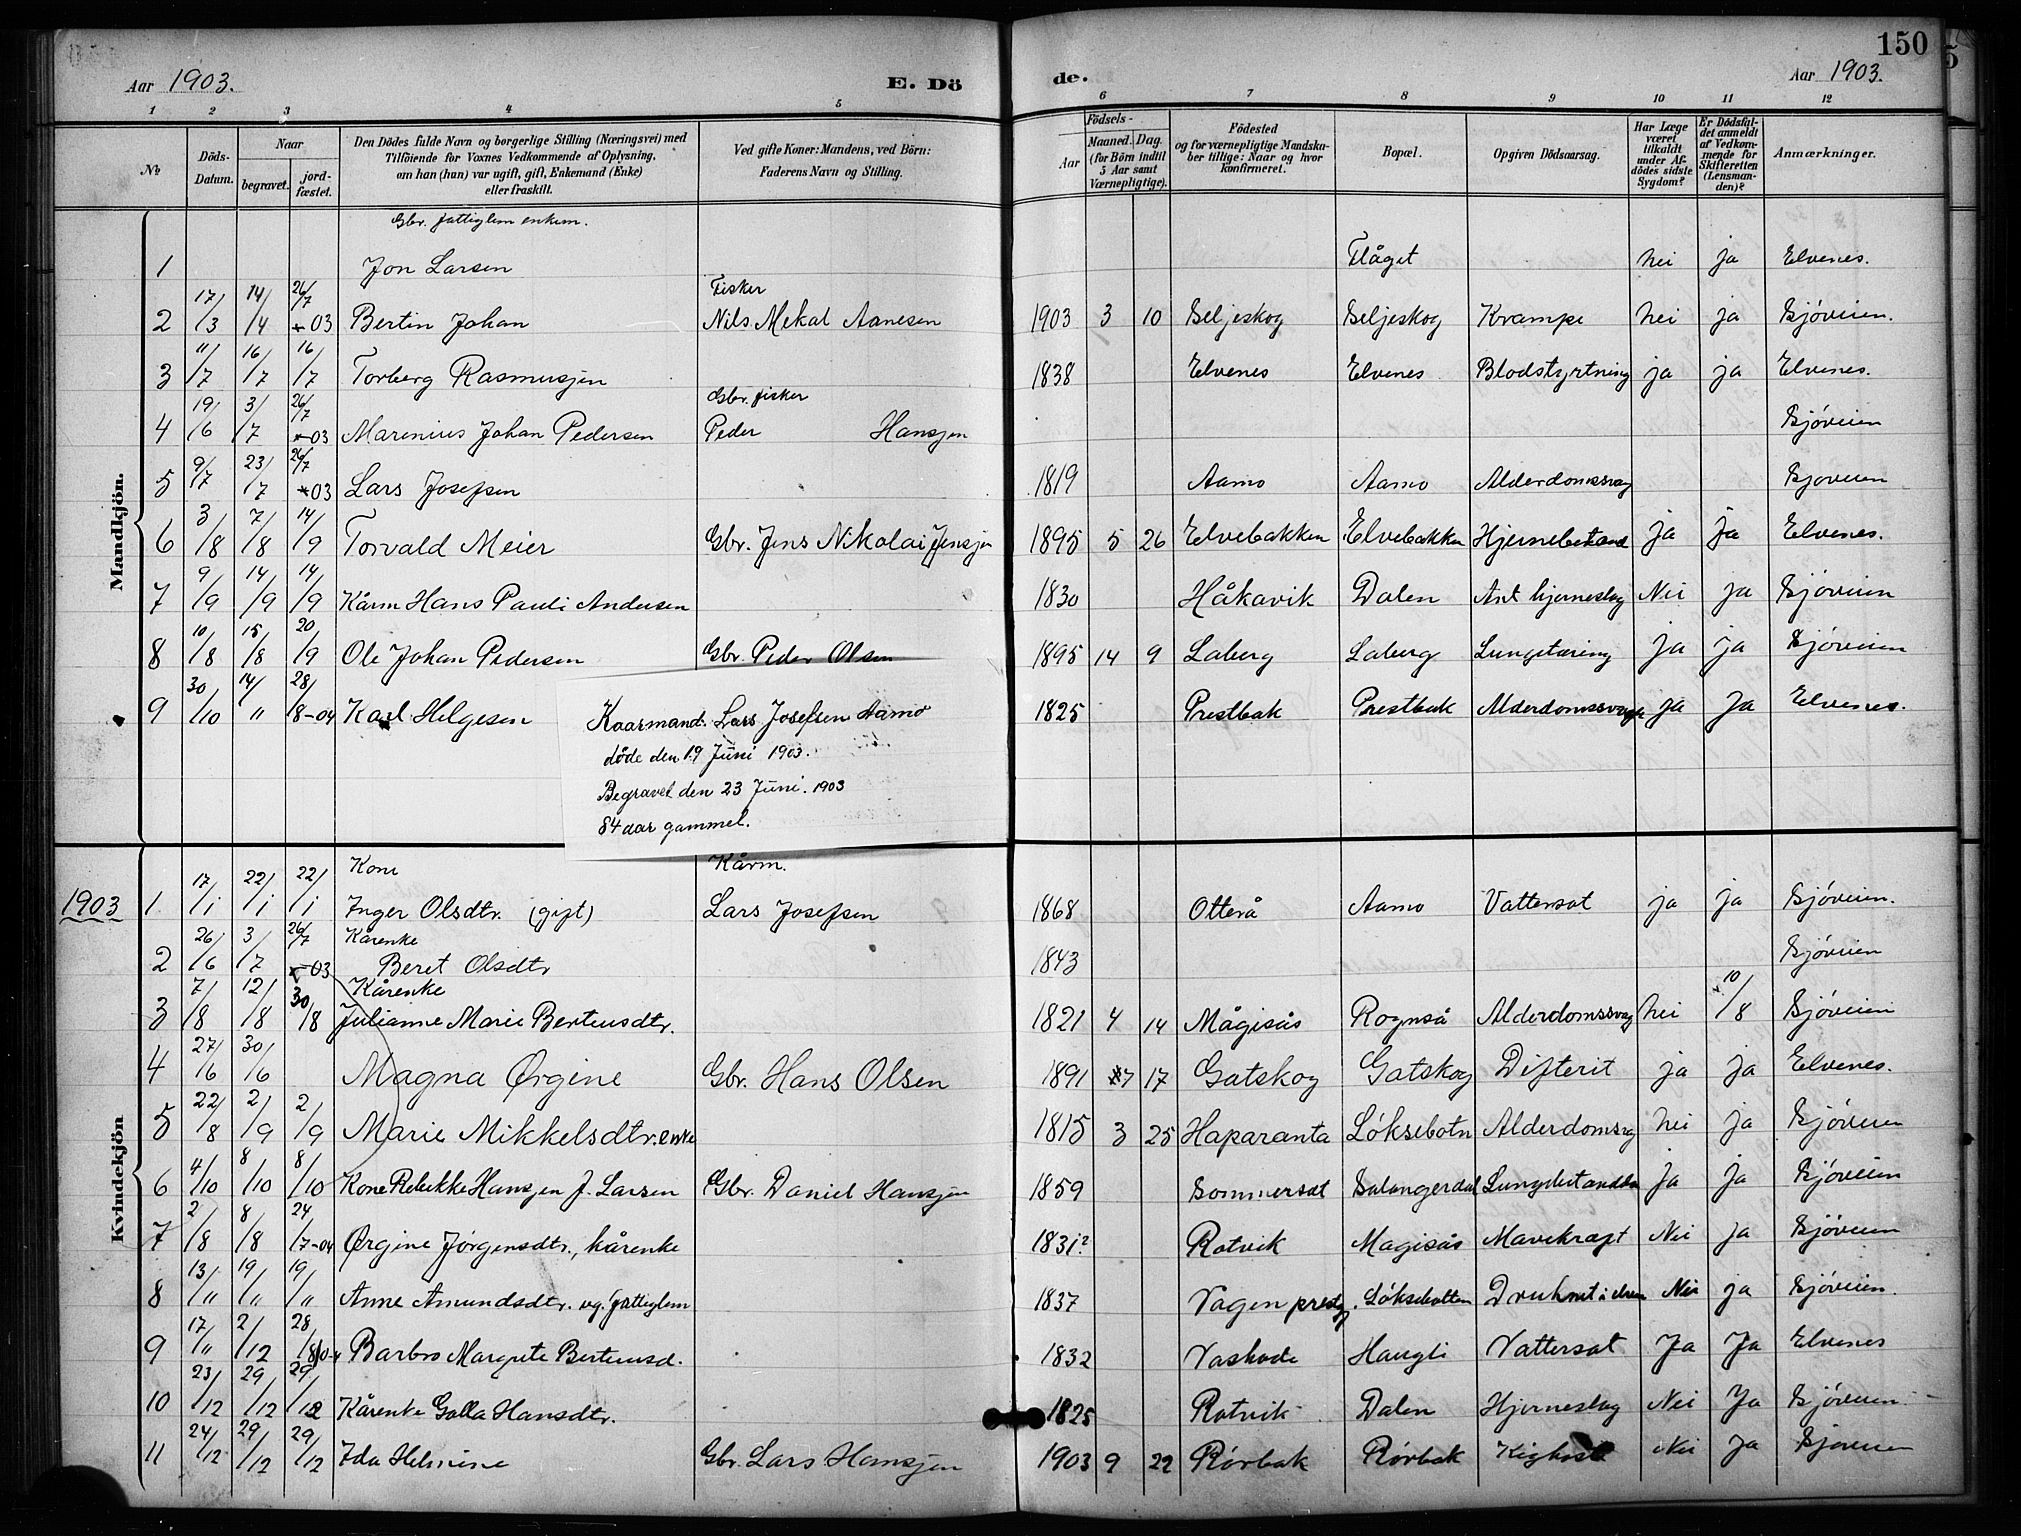 150
Aar 1903.
E. Dö
de.
Aar 1903.
1 2 3 4 5 6 7 8 9 10 11 12
No
Döds-Datum.
Naar
begravet.
jord-fæstet.
Den Dödes fulde Navn og borgerlige Stilling (Næringsvei) med
Tilföiende for Voxnes Vedkommende af Oplysning,
om han (hun) var ugift, gift, Enkemand (Enke)
eller fraskilt.
Ved gifte Koner: Mandens, ved Börn:
Faderens Navn og Stilling.
Födsels-
Aar
Maaned. Dag.
(for Börn indtil
5 Aar samt
Værnepligtige).
Födested
og for værnepligtige Mandska-
ber tillige: Naar og hvor
konfirmeret.
Bopæl.
Opgiven Dödsaarsag.
Har Læge
været
tilkaldt
under Af-
dödes sidste
Sygdom?
Er Dödsfal-
det anmeldt
af Vedkom-
mende for
Skifteretten
(Lensman-
den)?
Anmærkninger.
Mandkjön.
Gbr. fattiglem enkem.
1 Jon Larsen Flåget nei ja Elvenes.
Fisker
2 17/3 14/4 26/7 03 Bertin Johan Nils Mekal Aanesen 1903 3 10 Seljeskog Seljeskog Krampe nei ja Sjøveien.
3 11/7 16/7 16/7 Torberg Rasmussen 1838 Elvenes Elvenes Blodstyrtning ja ja Elvenes.
Gbr. fisker
4 19/6 3/7 26/7 03 Marenius Johan Pedersen Peder Hansen Sjøveien
5 9/7 23/7 26/7 03 Lars Josefsen 1819 Aamo Aamo Alderdomssvag Sjøveien
6 3/8 7/8 14/9 Torvald Meier Gbr. Jens Nikolai Jensen 1895 5 26 Elvebakken Elvebakken Hjernebetænd ja ja Elvenes.
7 9/9 14/9 14/9 Kårm Hans Pauli Andersen 1830 Håkavik Dalen Ant hjerneslag Nei ja Sjøveien
8 10/8 15/8 20/9 Ole Johan Pedersen Gbr. Peder Olsen 1895 14 9 Laberg Laberg Lungetæring ja ja Sjøveien
9 30/10 14/" 28/8-04 Karl Helgesen 1825 Prestbak Prestbak Alderdomssvag ja Ja Elvenes.
Kaarmand. Lars Josefsen Aamo
døde den 19 Juni 1903.
Begravet den 23 Juni. 1903
84 aar gammel.
Kvindekjön
1903
Kone Kårm.
1 17/1 22/1 22/1 Inger Olsdtr. (gift) Lars Josefsen 1868 Otterå Aamo Vattersot ja ja Sjøveien.
Kårenke
2 26/6 3/7 26/7 03 Beret Olsdtr 1843 Sjøveien
Kårenke
3 7/8 12/8 30/8 Julianne Marie Berteusdtr. 1821 4 14 Mågisås Rognså Alderdomssvag nei 10/8 Sjøveien
4 27/6 30/6 Magna Ørgine Gbr. Hans Olsen 1891 7 17 Gatskog Gatskog Difterit ja ja Elvenes.
5 22/8 2/9 2/9 Marie Mikkelsdtr. enke 1815 3 25 Haparanta Løksebotn Alderdomsvag nei ja Sjøveien
6 4/10 8/10 8/10 Kone Rebekke Hansen f. Larsen Gbr. Daniel Hansen 1859 Sommerset Salangerdal Lungebetændelse Ja ja Sjøveien
7 2/8 8/8 24/7-04 Ørgine Jørgensdtr., kårenke 1831? Rotvik Magisås Mavekræft Nei ja Sjøveien
8 13/" 19/" 19/" Anne Amundsdtr. ug. fattiglem 1837 Vagen prestg. Løksebotten Druknet i elven Nei ja Sjøveien.
9 17/" 2/12 28/8 04 Barbro Margrete Berteusd. 1832 Vaskode Haugli Vattersot Ja Ja Elvenes
10 23/12 29/12 29/12 Kårenke Golla Hansdtr. 1825 Rotvik Dalen Hjerneslag Nei Ja Sjøveien.
11 24/12 29/12 29/12 Ida Helmine Gbr. Lars Hansen 1903 9 22 Rørbak Rørbak Kighoste Nei Ja Sjøveien